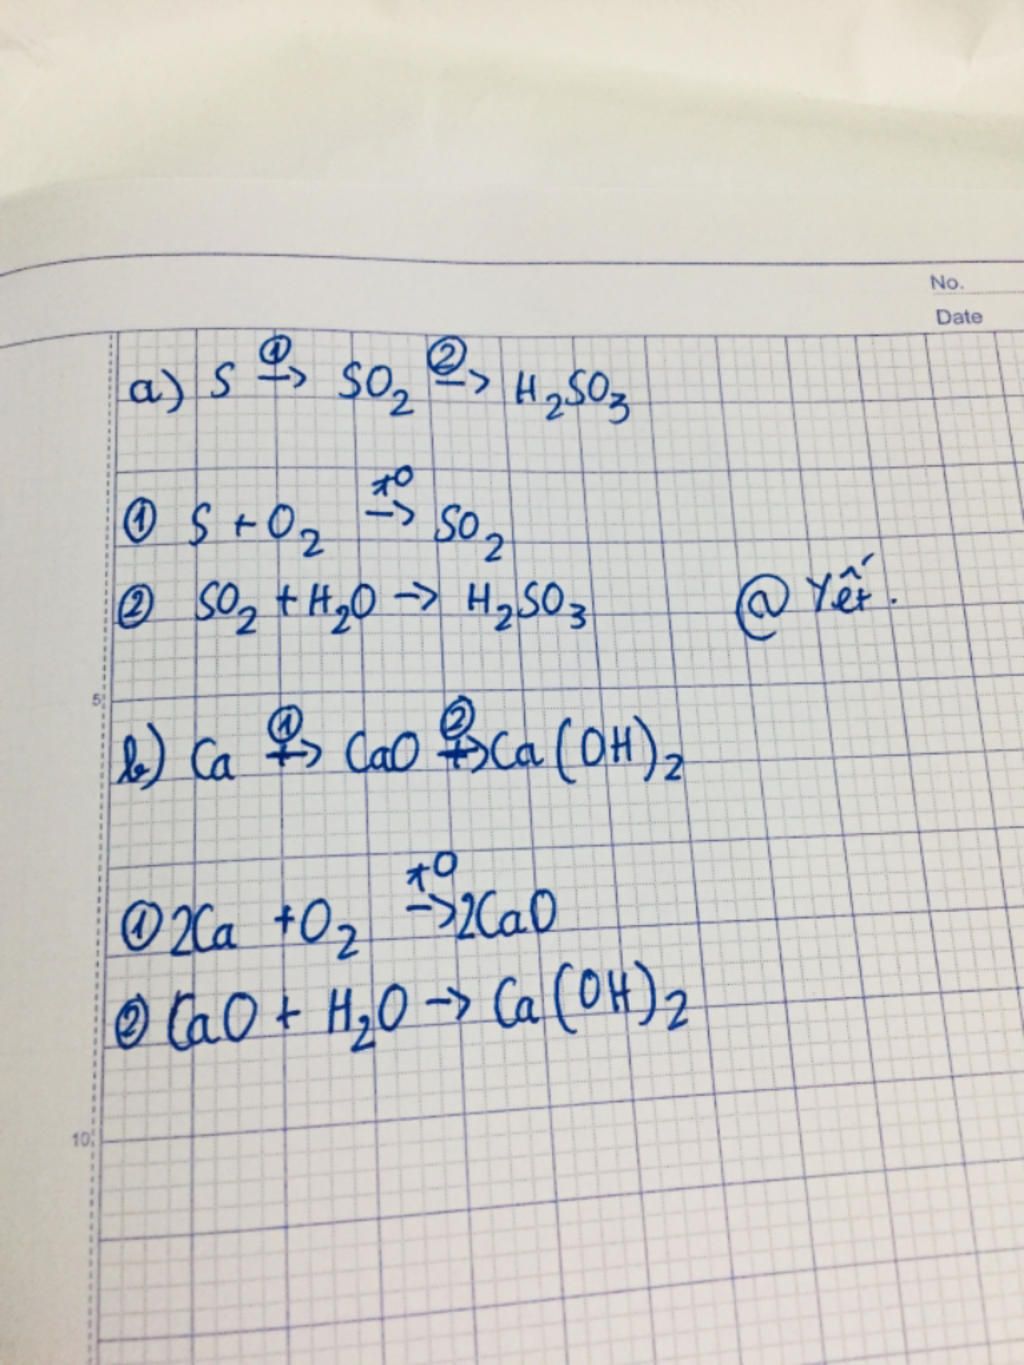 No.
Date
a) S ①→ SO₂ ②→ H₂SO₃
① S + O₂ t⁰→ SO₂
② SO₂ + H₂O → H₂SO₃
@ Yết.
5
b) Ca ①→ CaO ②→ Ca(OH)₂
① 2Ca + O₂ t⁰→ 2CaO
② CaO + H₂O → Ca(OH)₂
10